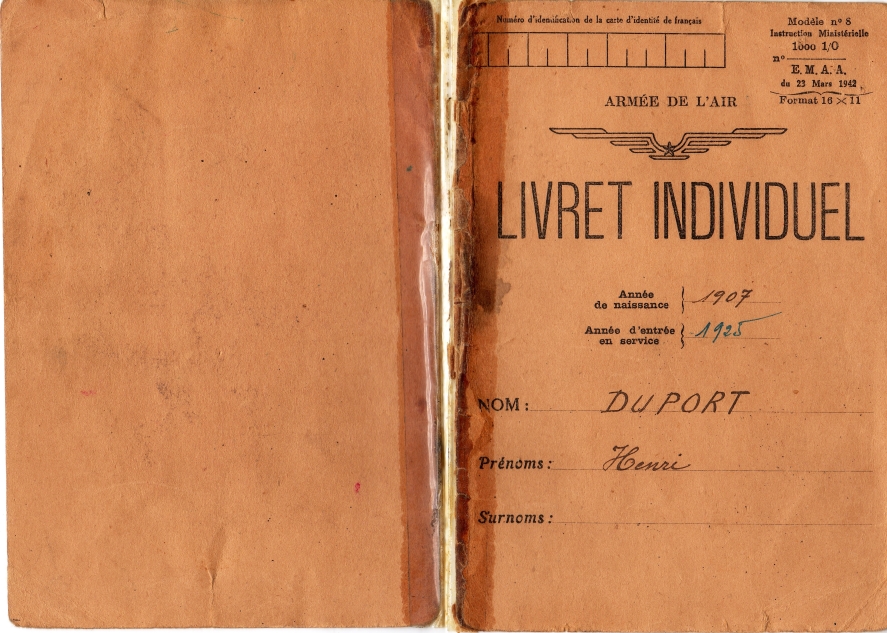 Numéro d'identification de la carte d'identité de français
Modèle nº 8
Instruction Ministérielle
1000 1/O
nº
E. M. A. A.
du 23 Mars 1942
Format 16 × 11
ARMÉE DE L'AIR
LIVRET INDIVIDUEL
Année de naissance } 1907
Année d'entrée en service } 1925
NOM : DUPORT
Prénoms : Henri
Surnoms :